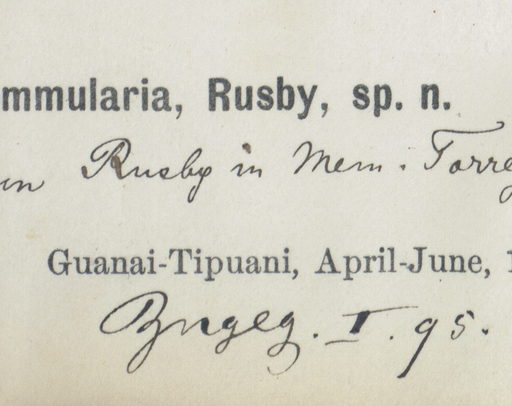 mmularia, Rusby, sp. n.
un Rusby in Mem. Torre
Guanai-Tipuani, April-June, 1
I. 95.